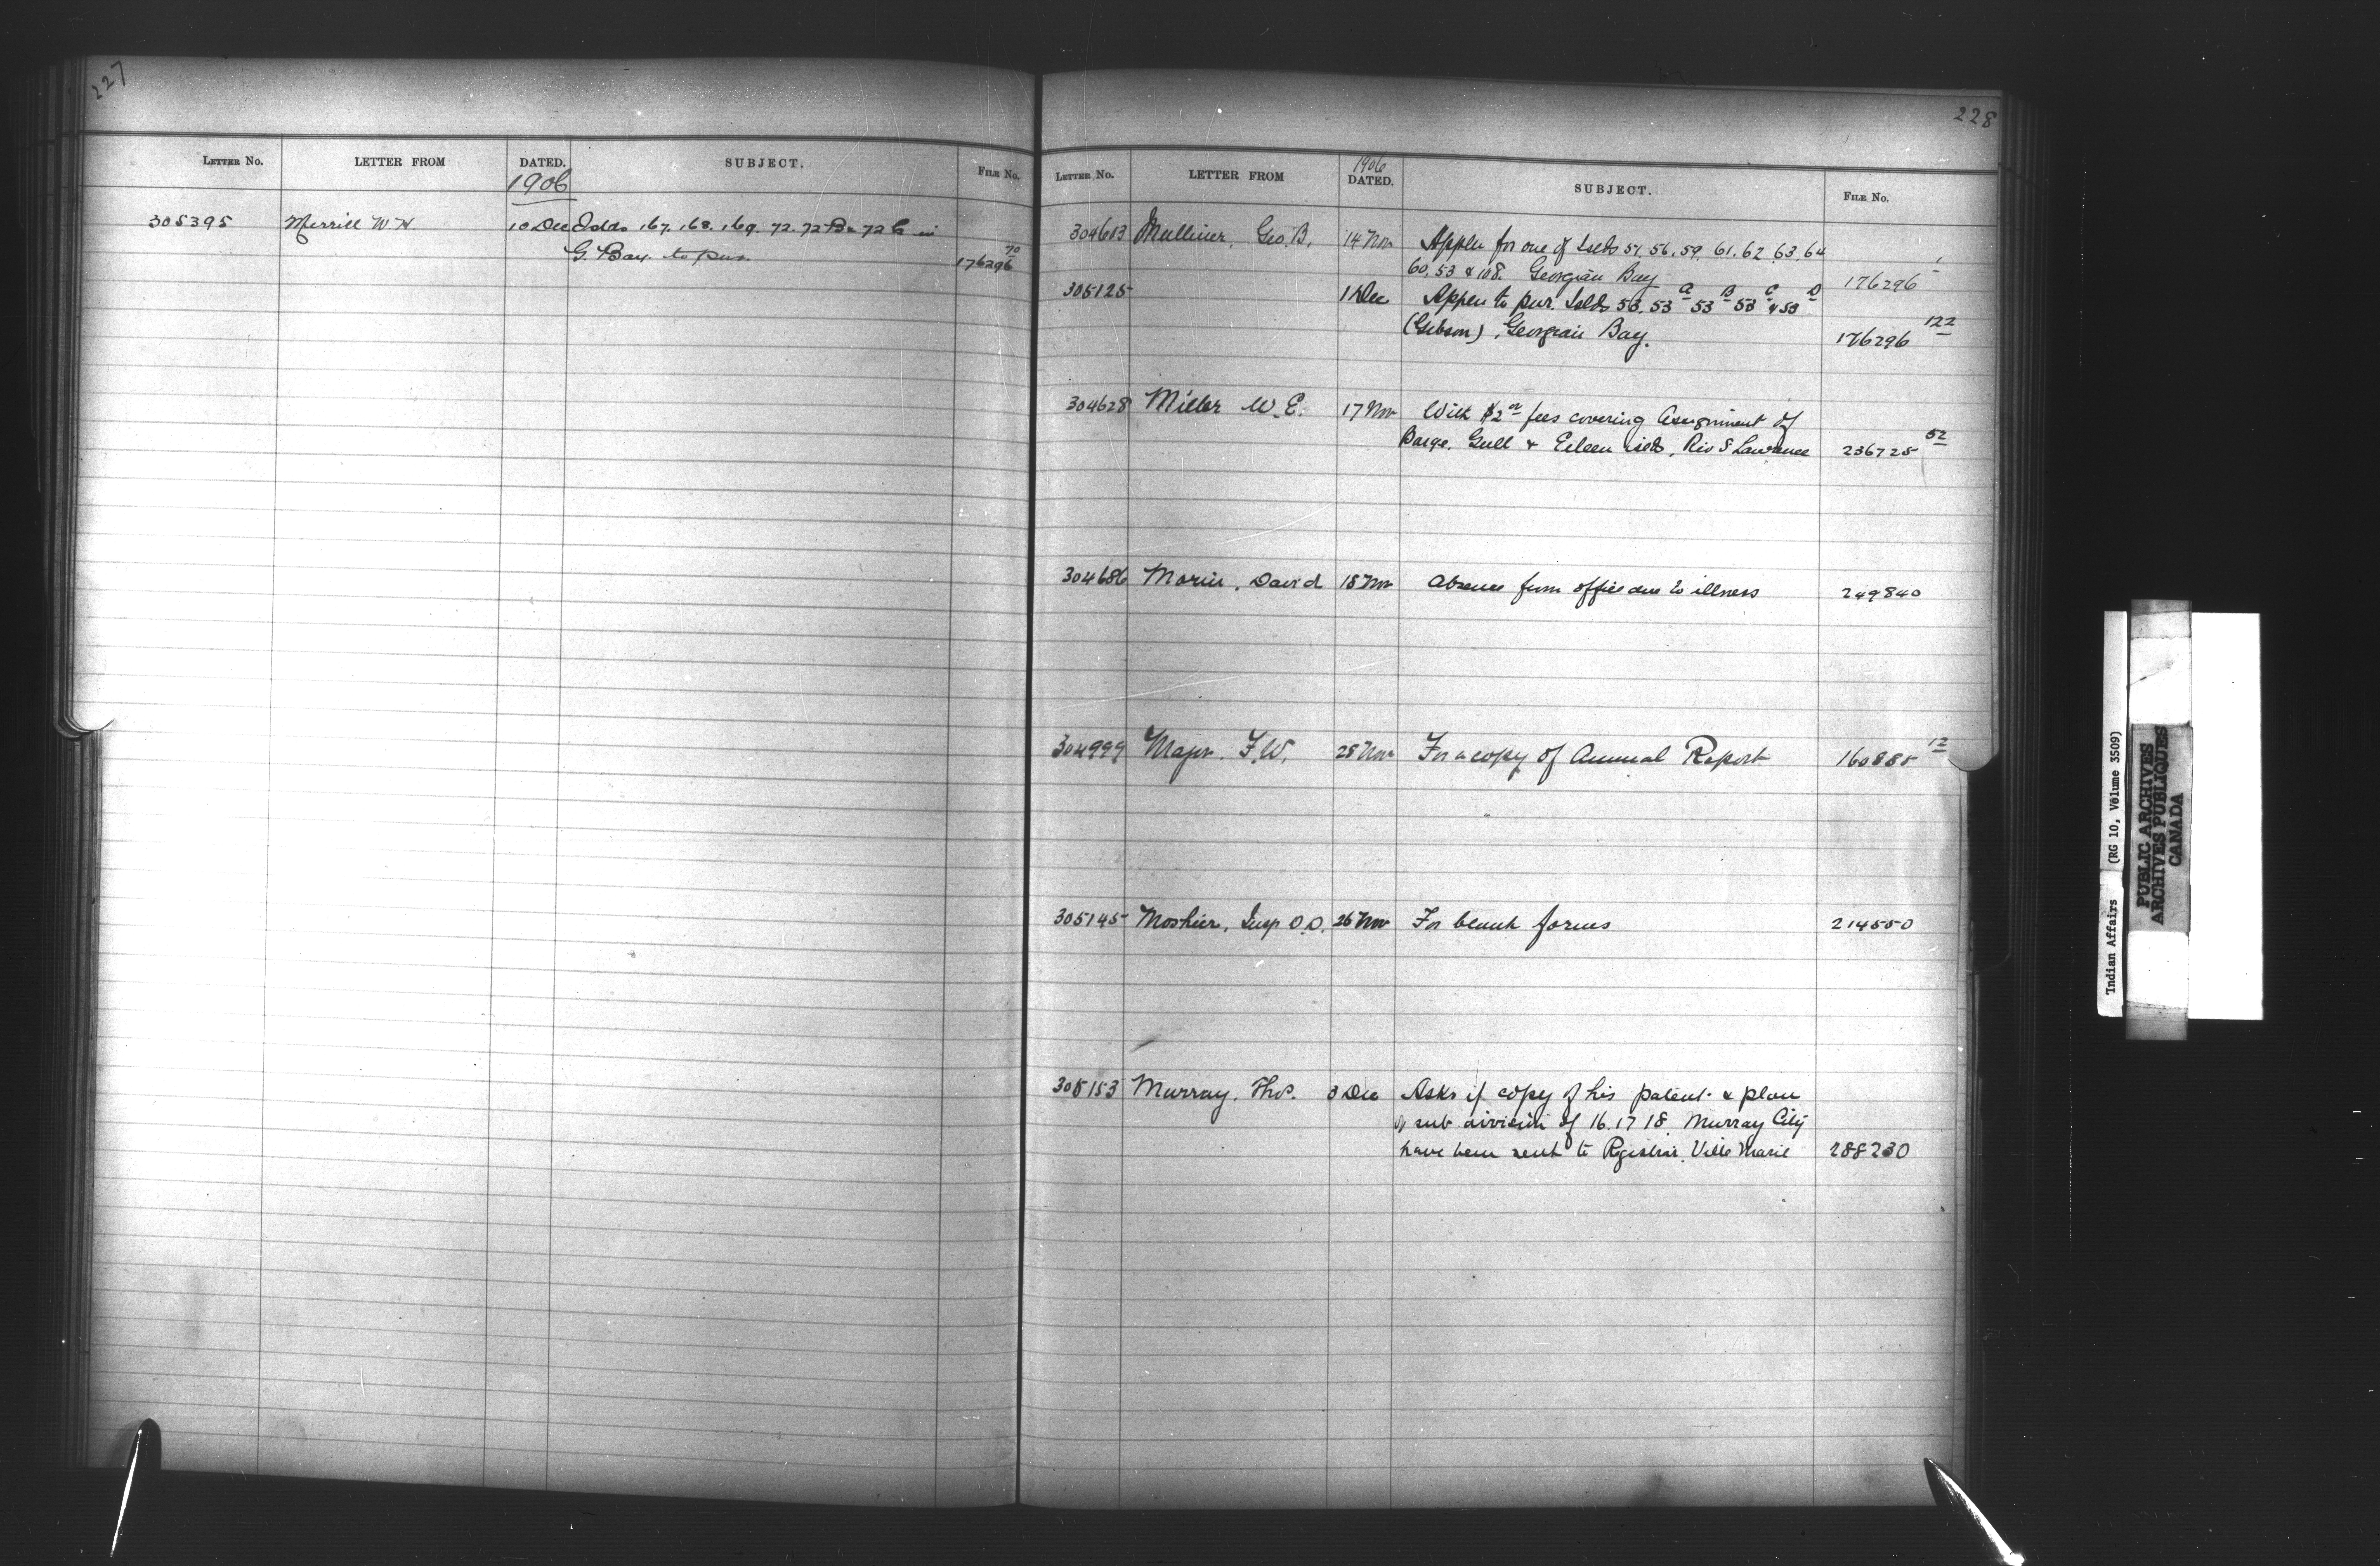 227
LETTER NO. LETTER FROM DATED. SUBJECT. FILE NO.
1906
305395 Merrill W.H 10 Dec Islds 167. 168. 169. 72. 72 B & 72 C in
G. Bay. to pur. 176296 70
228
LETTER NO. LETTER FROM 1906 DATED. SUBJECT. FILE NO.
304603 Mulliner, Geo. B. 14 Nov Appln for one of Islds 57, 56, 59, 61, 62, 63, 64
60, 53 & 108. Georgian Bay 176296
305125 1 Dec Appln to pur. Islds 53, 53 A 53 B 53 C & 53 D
(Gibson), Georgian Bay. 176296 122
304628 Miller W. E. 17 Nov With $2 00 fees covering Assignment of
Barge, Gull & Eileen islds, Riv St Lawrence 236725 52
304686 Morin, David 18 Nov Absence from office due to illness 249840
304999 Major. F.W. 28 Nov For a copy of Annual Report 160885 12
305145 Moshier, Insp O.D. 26 Nov For blank forms 214550
305153 Murray, Thos. 3 Dec Asks if copy of his patent & plan
of sub division of 16. 17 18 Murray City
have been sent to Registrar, Ville Marie 288230
Indian Affairs (RG 10, Volume 3509)
PUBLIC ARCHIVES
ARCHIVES PUBLIQUES
CANADA